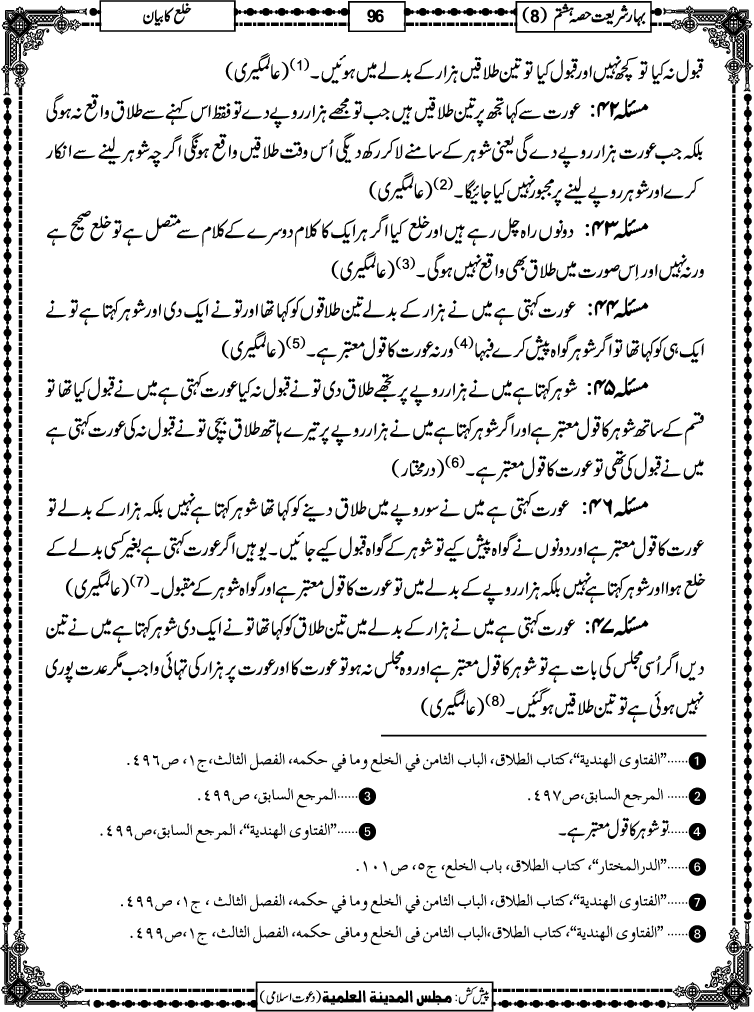 بہار شریعت حصہ ہشتم (8)
96
خلع کا بیان
قبول نہ کیا تو کچھ نہیں اور قبول کیا تو تین طلاقیں ہزار کے بدلے میں ہوئیں۔(1) (عالمگیری)
مسئلہ ۴۲: عورت سے کہا تجھ پر تین طلاقیں ہیں جب تو مجھے ہزار روپے دے تو فقط اس کہنے سے طلاق واقع نہ ہوگی
بلکہ جب عورت ہزار روپے دے گی یعنی شوہر کے سامنے لا کر رکھ دیگی اُس وقت طلاقیں واقع ہونگی اگرچہ شوہر لینے سے انکار
کرے اور شوہر روپے لینے پر مجبور نہیں کیا جائیگا۔(2) (عالمگیری)
مسئلہ ۴۳: دونوں راہ چل رہے ہیں اور خلع کیا اگر ہر ایک کا کلام دوسرے کے کلام سے متصل ہے تو خلع صحیح ہے
ورنہ نہیں اور اِس صورت میں طلاق بھی واقع نہیں ہوگی۔(3) (عالمگیری)
مسئلہ ۴۴: عورت کہتی ہے میں نے ہزار کے بدلے تین طلاقوں کو کہا تھا اور تو نے ایک دی اور شوہر کہتا ہے تو نے
ایک ہی کو کہا تھا تو اگر شوہر گواہ پیش کرے فبہا(4) ورنہ عورت کا قول معتبر ہے۔(5) (عالمگیری)
مسئلہ ۴۵: شوہر کہتا ہے میں نے ہزار روپے پر تجھے طلاق دی تو نے قبول نہ کیا عورت کہتی ہے میں نے قبول کیا تھا تو
قسم کے ساتھ شوہر کا قول معتبر ہے اور اگر شوہر کہتا ہے میں نے ہزار روپے پر تیرے ہاتھ طلاق بیچی تو نے قبول نہ کی عورت کہتی ہے
میں نے قبول کی تھی تو عورت کا قول معتبر ہے۔(6) (درمختار)
مسئلہ ۴۶: عورت کہتی ہے میں نے سو روپے میں طلاق دینے کو کہا تھا شوہر کہتا ہے نہیں بلکہ ہزار کے بدلے تو
عورت کا قول معتبر ہے اور دونوں نے گواہ پیش کیے تو شوہر کے گواہ قبول کیے جائیں۔ یوہیں اگر عورت کہتی ہے بغیر کسی بدلے کے
خلع ہوا اور شوہر کہتا ہے نہیں بلکہ ہزار روپے کے بدلے میں تو عورت کا قول معتبر ہے اور گواہ شوہر کے مقبول۔(7) (عالمگیری)
مسئلہ ۴۷: عورت کہتی ہے میں نے ہزار کے بدلے میں تین طلاق کو کہا تھا تو نے ایک دی شوہر کہتا ہے میں نے تین
دیں اگر اُسی مجلس کی بات ہے تو شوہر کا قول معتبر ہے اور وہ مجلس نہ ہو تو عورت کا اور عورت پر ہزار کی تہائی واجب مگر عدت پوری
نہیں ہوئی ہے تو تین طلاقیں ہوگئیں۔(8) (عالمگیری)
1......"الفتاوى الهندية"، كتاب الطلاق، الباب الثامن في الخلع وما في حكمه، الفصل الثالث، ج١، ص٤٩٦.
2...... المرجع السابق، ص٤٩٧. 3......المرجع السابق، ص٤٩٩.
4......تو شوہر کا قول معتبر ہے۔ 5......"الفتاوى الهندية"، المرجع السابق، ص٤٩٩.
6......"الدرالمختار"، كتاب الطلاق، باب الخلع، ج٥، ص١٠١.
7......"الفتاوى الهندية"، كتاب الطلاق، الباب الثامن في الخلع وما في حكمه، الفصل الثالث ، ج١، ص٤٩٩.
8...... "الفتاوى الهندية"، كتاب الطلاق، الباب الثامن فى الخلع ومافى حكمه، الفصل الثالث، ج١، ص٤٩٩.
پیش کش: مجلس المدینة العلمیة (دعوت اسلامی)